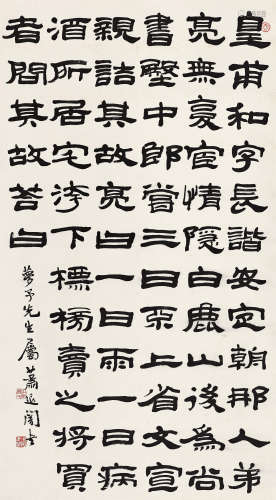 皇甫和字長諧安定朝那人弟
亮無复宦情隱白鹿山後為尚
書壂中郎嘗三日不上省文宣
親詰其故亮曰一日雨一日病
酒所居宅洿下標榜賣之將買
者問其故荅曰
夢予先生屬 蕭退闇書